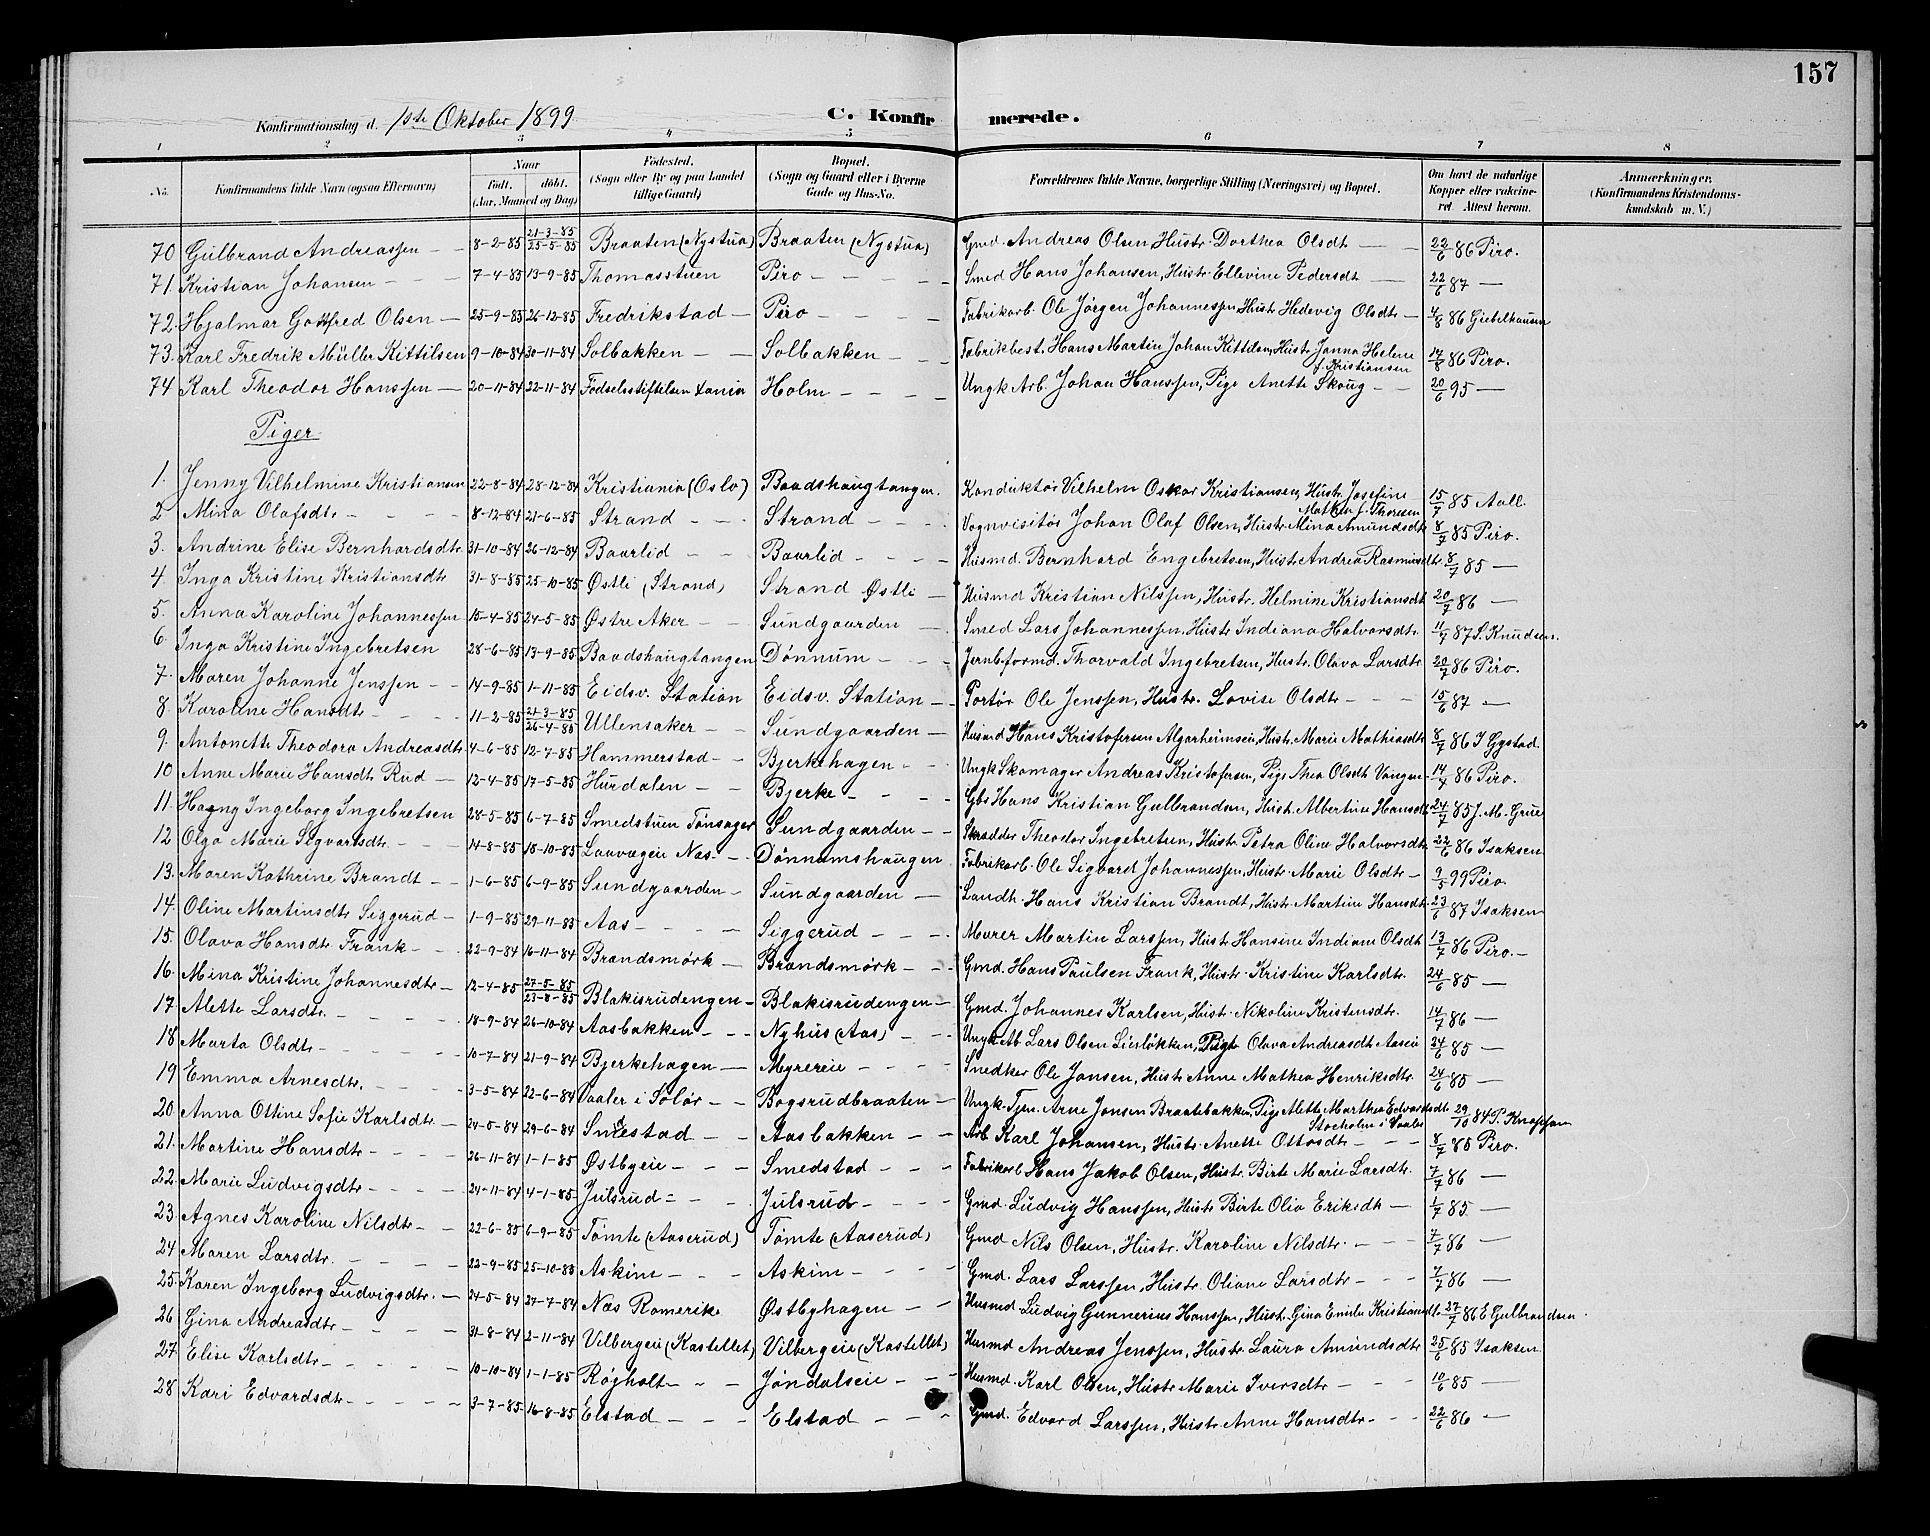 157
Konfirmationsdag d. 1ste Oktober 1899 C. Konfirmerede.
1 2 3 4 5 6 7 8
No. Konfirmandens fulde Navn (ogsaa Efternavn) Naar født. døbt. (Aar, Maaned og Dag) Fødested. (Sogn eller By og paa Landet tillige Gaard) Bopæl. (Sogn og Gaard eller i Byerne Gade og Hus-No. Forældrenes fulde Navne, borgerlige Stilling (Næringsvei) og Bopæl. Om havt de naturlige Kopper eller vaccineret. Attest herom. Anmærkninger. (Konfirmandens Kristendomskundskab m. V.)
70 Gulbrand Andreassen — 8-2-85 21-3-85 25-5-85 Braaten (Nystua) Braaten (Nystua) Gmd. Andreas Olsen Hustr. Dorthea Olsdt — 22/6 86 Piro.
71. Kristian Johansen - - - 7-4-85 13-9-85 Thomasstuen Piro - - - Smed Hans Johansen, Hustr. Ellevine Pedersdt — 22/6 87 —
72. Hjalmar Gottfred Olsen — 25-9-85 26-12-85 Fredrikstad — Piro - - - Fabrikarb. Ole Jørgen Johannessen Hustr. Hedevig Olsdtr — 4/8 86 Giebelhausen
73. Karl Fredrik Müller Kittilsen 9-10-84 30-11-84 Solbakken — Solbakken - - Fabrikbest. Hans Martin Johan Kittilsen, Hustr. Janna Helene f. Kristiansen 14/8 86 Piro.
74 Karl Theodor Hanssen — 20-11-84 22-11-84 Fødselsstiftelsen Xania Holm - - - Ungk. Arb. Johan Hanssen, Pige Anette Skoug - - 20/6 95 —
Piger
1. Jenny Vilhelmine Kristiansen 22-8-84 28-12-84 Kristiania (Oslo) Baadshaugtangen. Konduktør Vilhelm Oskar Kristiansen, Hustr. Josefine f. Thoresen 15/7 85 Aall.
2 Mina Olafsdtr. - - - 8-12-84 21-6-85 Strand - - Strand - - - Vognvisitør Johan Olaf Olsen, Hustr. Mina Amundsdtr 8/7 85 Piro.
3. Andrine Elise Bernhardsdtr 31-10-84 26-12-84 Baarlid - - Baarlid - - - Husmd Bernhard Engebretsen, Hustr. Andrea Rasmusdtr. 8/7 85 —
4. Inga Kristine Kristiansdtr 31-8-85 25-10-85 Østli (Strand) Strand Østli — Husmd Kristian Nilssen, Hustr. Helmine Kristiansdt 20/7 86 —
5. Anna Karoline Johannessen 15-4-85 24-5-85 Østre Aker - - Sundgaarden — Smed Lars Johannessen, Hustr. Indiana Halvorsdtr. 11/7 87 S. Knudsen.
6. Inga Kristine Ingebretsen 28-6-85 13-9-85 Baadshaugtangen Dønnum - - - Jernb.formd. Thorvald Ingebretsen, Hustr. Olava Larsdtr 20/7 86 Piro.
7. Maren Johanne Jenssen - - 14-9-85 1-11-85 Eidsv. Station Eidsv. Station - Portør Ole Jenssen, Hustr. Lovise Olsdtr - - - 15/6 87 —
8. Karoline Hansdtr - - - 11-2-85 21-3-85 26-4-85 Ullensaker - - Sundgaarden — Husmd Hans Kristofersen Algarheimseie, Hustr. Marie Mathiasdtr 8/7 86 J Gystad.
9. Antonette Theodora Andreasdtr. 4-6-85 12-7-85 Hammerstad - - Bjerkehagen - - Ungk Skomager Andreas Kristofersen, Pige Thea Olsdt Vangen 14/7 86 Piro.
10 Anne Marie Hansdt Rud - 12-4-85 17-5-85 Hurdalen - - Bjerke - - - Gbr Hans Kristian Gulbrandsen, Hustr. Albertine Hansdtr 24/7 85 J. M. Grue
11. Hagny Ingeborg Ingebretsen 28-5-85 6-7-85 Smedstuen Tønsager Sundgaarden - - Skrædder Theodor Ingebretsen, Hustr. Petra Oline Halvorsdtr 22/6 86 Isaksen
12 Olga Marie Sigvartsdtr. - - 14-8-85 18-10-85 Laavegeie Næs - - Dønnumshaugen Fabrikarb. Ole Sigvard Johannessen, Hustr. Marie Olsdtr — 9/5 99 Piro.
13. Maren Kathrine Brandt - - 1-6-85 6-9-85 Sundgaarden - Sundgaarden - Landh. Hans Kristian Brandt, Hustr. Martine Hansdtr. 23/6 87 Isaksen
14. Oline Martinsdtr Siggerud - 1-9-85 29-11-85 Aas - - - Siggerud - - - Murer Martin Larssen, Hustr. Hansine Indiane Olsdt 13/7 86 Piro. —
15. Olava Hansdtr. Frank - - - 22-9-84 16-11-84 Brandsmørk - Brandsmørk - - Gmd. Hans Paulsen Frank, Hustr. Kristine Karlsdtr. 24/6 85 —
16. Mina Kristine Johannesdtr - 12-4-85 27-5-85 23-8-85 Blakisrudengen - Blakisrudengen - Gmd. Johannes Karlsen, Hustr. Nikoline Kristensdtr. 14/7 86 —
17 Alette Larsdtr. - - - 18-9-84 26-10-84 Aasbakken - - Nyhus (Aas) - - Ungk Ab Lars Olsen Lierløkken, Pige Olava Andreasdt Aaseie 24/6 85 —
18 Marta Olsdtr - - - - 10-7-84 21-9-84 Bjerkehagen - Myrereie - - - Snedker Ole Jansen, Hustr. Anne Mathea Henriksdtr. 24/6 85 —
19 Emma Arnesdtr. - - - 3-5-84 22-6-84 Vaaler i Solør - - Bogsrudbraaten - Ungk. Tjen. Arne Jonsen Braatebakken, Pige Alette Marthea Edvardsdtr Stocholm i Vaaler 29/10 84 P. Knoffsen
20. Anna Ottine Sofie Karlsdtr - 24-5-84 29-6-84 Smestad - - Aasbakken - - Arb. Karl Johansen, Hustr. Anette Ottosdt - - - 8/7 85 Piro.
21. Martine Hansdtr - - - 26-11-84 1-1-85 Østbyeie - - - Smedstad - - - Fabrikarb Hans Jakob Olsen, Hustr. Birte Marie Larsdtr. 7/7 86 —
22. Marie Ludvigsdtr - - - 24-11-84 4-1-85 Julsrud - - Julsrud - - - Gmd. Ludvig Hanssen, Hustr. Birte Olia Eriksdt - 1/7 85 —
23. Agnes Karoline Nilsdtr - - 22-6-85 6-9-85 Tømte (Aaserud) Tømte (Aaserud) Gmd Nils Olsen, Hustr. Karoline Nilsdtr. - - - 7/7 86 —
24 Maren Larsdtr. - - - 22-9-85 25-10-85 Askim - - - Askim - - - Gmd. Lars Larssen, Hustr. Oliane Larsdtr - - - 7/7 86 —
25. Karen Ingeborg Ludvigsdtr. - 24-5-84 27-7-84 Næs Romerike Østbyhagen - - Husmd. Ludvig Gunnerius Hanssen, Hustr. Gina Emilie Kristiansdtr. 27/7 86 E Gulbrandsen.
26 Gina Andreasdtr - - - 31-8-84 2-11-84 Vilbergeie (Kastellet) Vilbergeie (Kastellet) Husmd Andreas Jenssen, Hustr. Laura Amundsdtr 25/6 85 Isaksen.
27. Elise Karlsdtr - - - 10-10-84 1-1-85 Røgholt - - Jøndalseie - - - Husmd. Karl Olsen, Hustr. Marie Iversdtr - - - 10/6 85 —
28 Kari Edvardsdtr. - - - 3-7-85 16-8-85 Elstad - - - Elstad - - - Gmd. Edvard Larssen, Hustr. Anne Hansdtr - - - 22/6 86 —